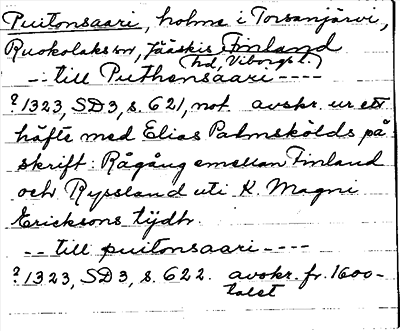 Puitonsaari, holme i Torsanjärvi,
Ruokolaks sn, Jääskis hd, Viborgs l. Finland
-- till Puthensaari ----
? 1323, SD 3, s. 621, not. avskr. ur ett
häfte med Elias Palmskölds på
skrift: Rågång emellan Finland
och Ryssland uti K. Magni
Ericksons tijdh.
-- till puitonsaari ----
? 1323, SD 3, s. 622. avskr. fr. 1600-
talet